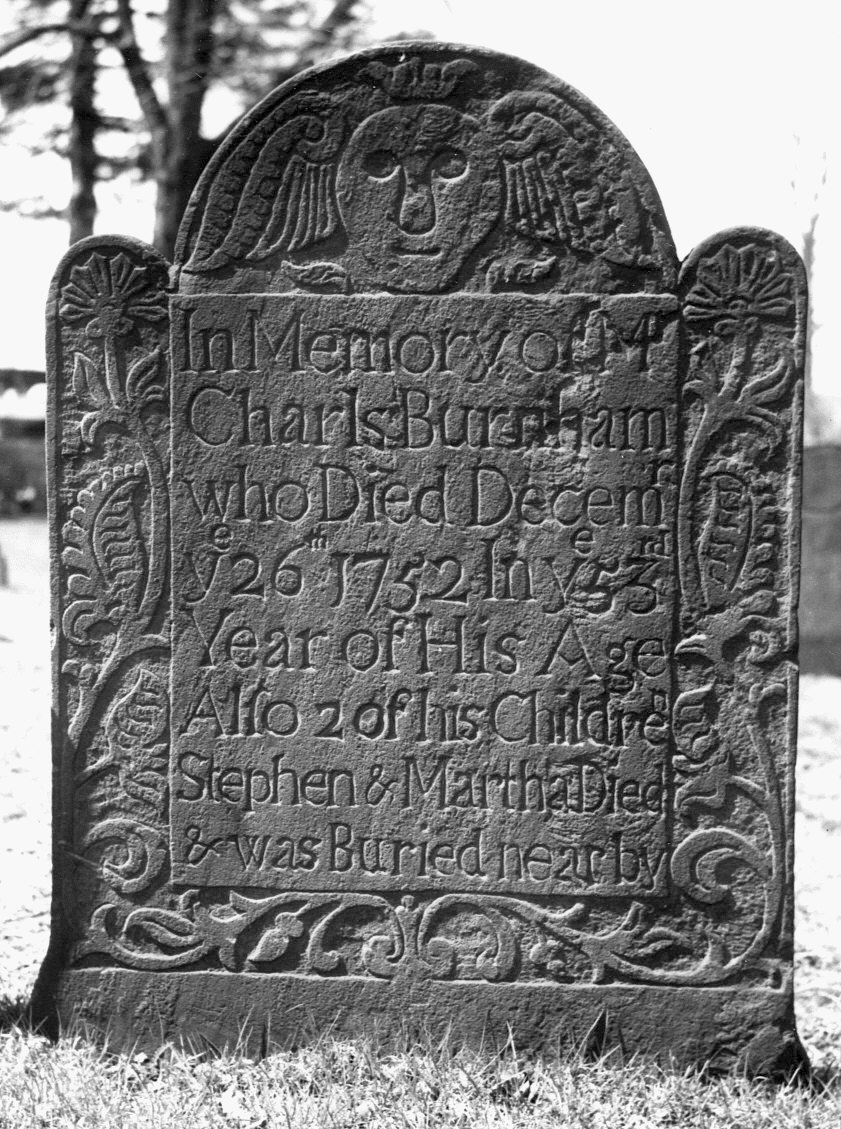 In Memory of Mʳ
Charls Burnham
who Died Decemʳ
yᵉ 26ᵗʰ 1752 In yᵉ 53ʳᵈ
Year of His Age
Alſo 2 of his Childreⁿ
Stephen & Martha Died
& was Buried near by